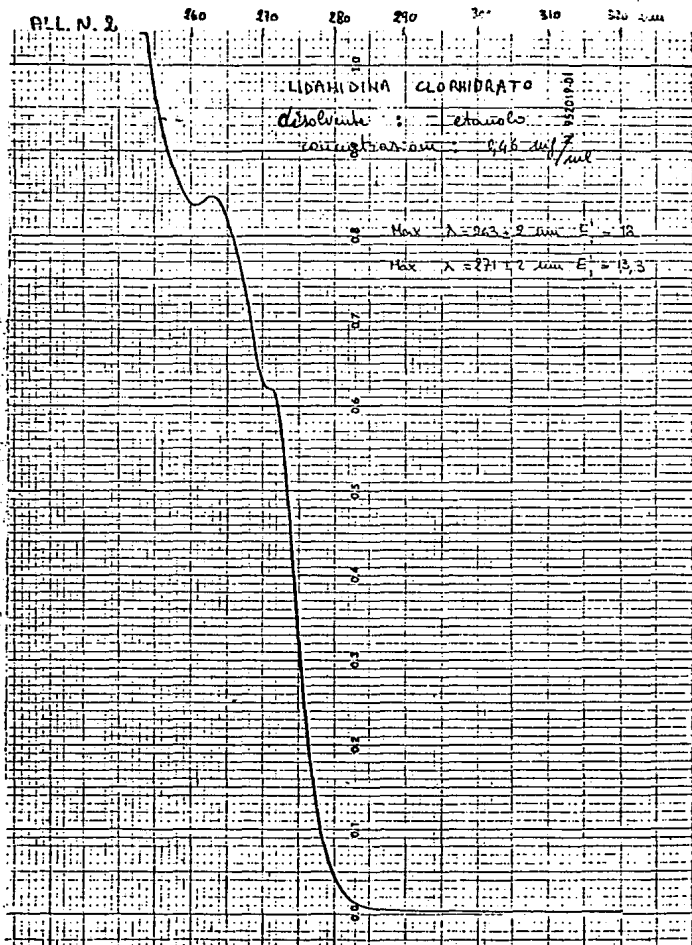 ALL. N. 2
260 270 280 290 310
LIDAMIDINA CLORHIDRATO
disolvente : etanolo
concentrasione : 0,46 mg/ml
Max λ = 263 ± 2 nm E¹₁ = 18
Max λ = 271 ± 2 nm E¹₁ = 13,3
1.0
0.8
0.7
0.6
0.5
0.4
0.3
0.2
0.1
0.0